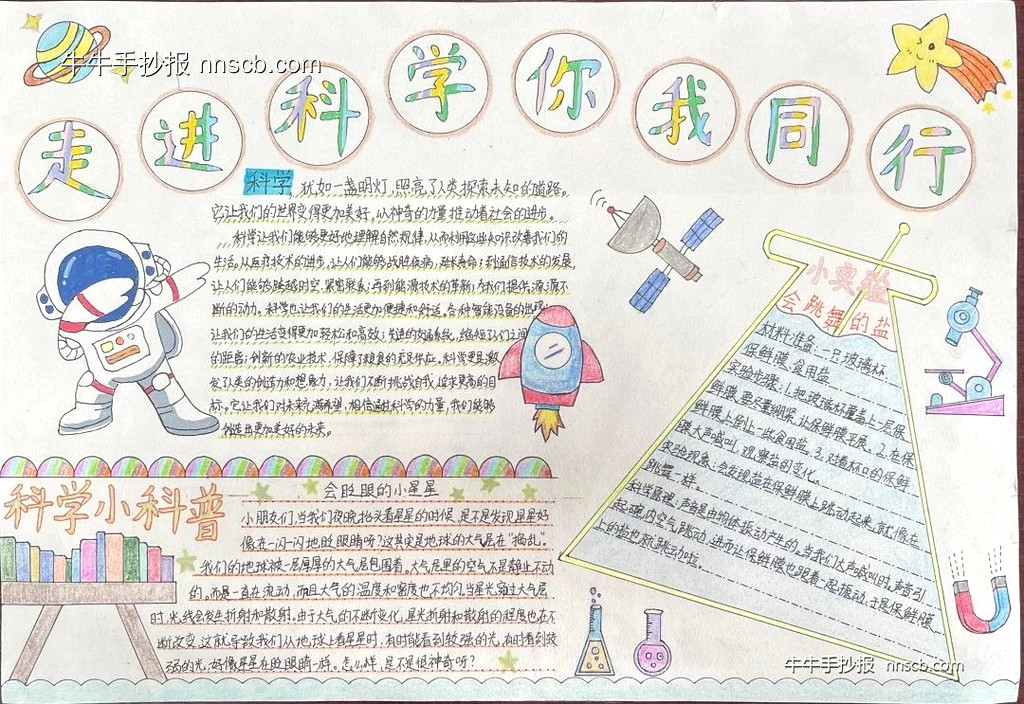 牛牛手抄报 nnscb.com
走进科学你我同行
科学,犹如一盏明灯,照亮了人类探索未知的道路。
它让我们的世界变得更加美好,以神奇的力量推动着社会的进步。
科学让我们能够更好地理解自然规律,从而利用这些知识改善我们的
生活。从医疗技术的进步,让人们能够战胜疾病,延长寿命;到通信技术的发展,
让人们能够跨越时空,紧密联系;再到能源技术的革新,为我们提供源源不
断的动力。科学也让我们的生活更加便捷和舒适。各种智能设备的出现,
让我们的生活变得更加轻松和高效;先进的交通系统,缩短了人们之间
的距离;创新的农业技术,保障了粮食的充足供应。科学更是激
发了人类的创造力和想象力,让我们不断挑战自我,追求更高的目
标。它让我们对未来充满希望,相信通过科学的力量,我们能够
创造出更加美好的未来。
科学小科普
会眨眼的小星星
小朋友们,当我们夜晚抬头看星星的时候,是不是发现星星好
像在一闪一闪地眨眼睛呀?这其实是地球的大气层在“捣乱”。
我们的地球被一层厚厚的大气层包围着。大气层里的空气不是静止不动
的,而是一直在流动,而且大气的温度和密度也不均匀。当星光穿过大气层
时,光线会发生折射和散射。由于大气的不断变化,星光折射和散射的程度也在不
断改变,这就导致我们从地球上看星星时,有时能看到较强的光,有时看到较
弱的光,好像星星在眨眼睛一样。怎么样,是不是很神奇呀?
小实验
会跳舞的盐
材料准备:一只玻璃杯、
保鲜膜、食用盐
实验步骤:1.把玻璃杯覆盖上一层保
鲜膜,要尽量绷紧,让保鲜膜平展。2.在保
鲜膜上倒上一些食用盐。3.对着杯口的保鲜
膜大声喊叫,观察盐的变化。
实验现象:会发现盐在保鲜膜上跳动起来,就像在
跳舞一样。
科学原理:声音是由物体振动产生的。当我们大声喊叫时,声音引
起碗内空气跳动,进而让保鲜膜也跟着一起振动,于是保鲜膜
上的盐也就跳动啦。
牛牛手抄报 nnscb.com